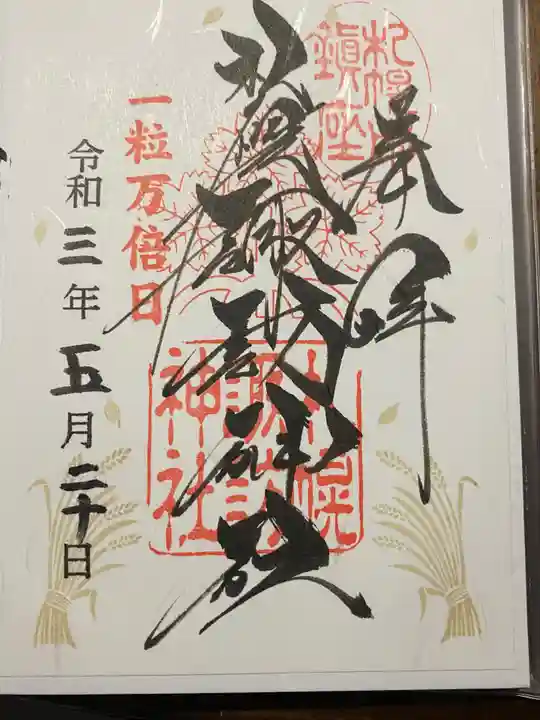 奉拝
札幌
鎮座
札幌諏訪神社
札幌
諏訪
神社
一粒万倍日
令和三年五月二十日